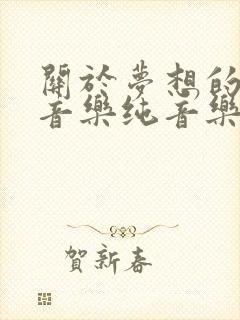 關於夢想的
音樂纯音樂
賀新春